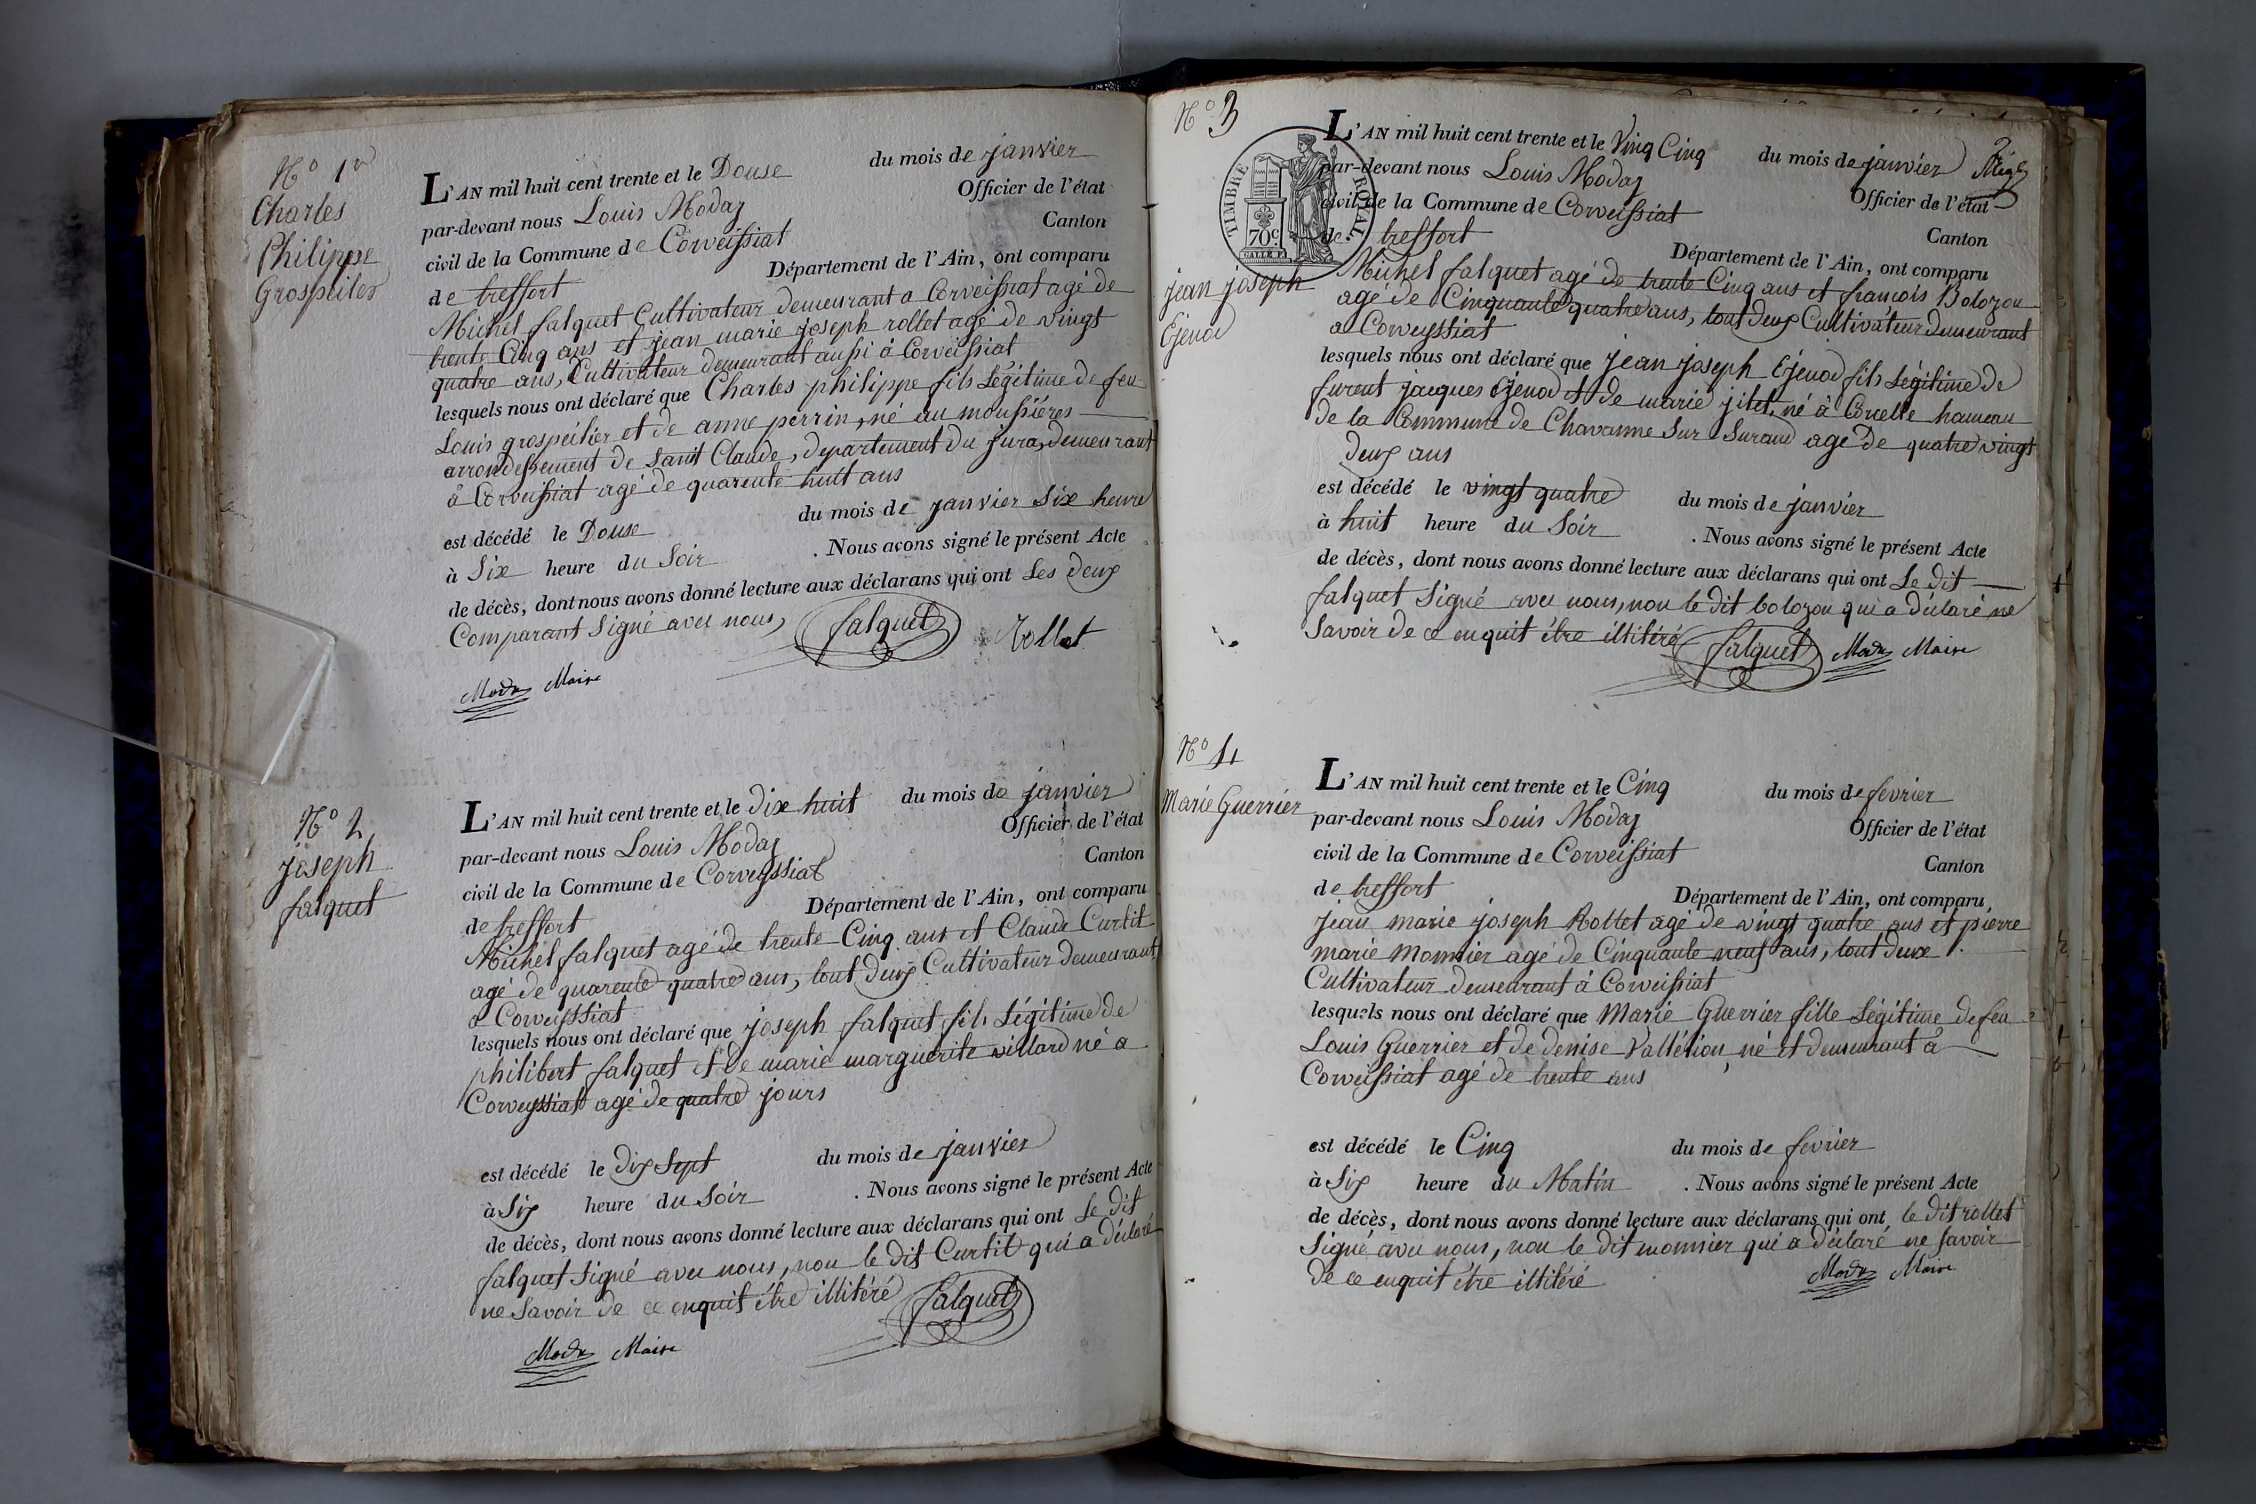 N.º 1er
Charles
Philippe
Grospélier
L'AN mil huit cent trente et le Douse du mois de janvier
par-devant nous Louis Moday Officier de l'état
civil de la Commune de Corveissiat Canton
de treffort Département de l'Ain, ont comparu
Michel falquet Cultivateur demeurant a Corveissiat agé de
trente Cinq ans et jean marie joseph rollet agé de vingt
quatre ans, Cultivateur demeurant aussi à Corveissiat
lesquels nous ont déclaré que Charles philippe fils Légitime de feu
Louis grospélier et de anne perrin, né au moussiéres
arrondessement de Sanit Claude, departement du jura, demeurant
à Corveissiat agé de quarente huit ans
est décédé le Douse du mois de janvier Six heure
à Six heure du Soir . Nous avons signé le présent Acte
de décès, dont nous avons donné lecture aux déclarans qui ont Les deux
Comparant Signé avec nous, falquet Rollet
Moday Maire
N.º 2
joseph
falquet
L'AN mil huit cent trente et le dix huit du mois de janvier
par-devant nous Louis Moday Officier de l'état
civil de la Commune de Corveyssiat Canton
de treffort Département de l'Ain, ont comparu
Michel falquet agé de trente Cinq ans et Claude Curtit
agé de quarente quatre ans, tout deux Cultivateur demeurant
a Corveissiat
lesquels nous ont déclaré que joseph falquet fils Légitime de
philibert falquet et de marie marguerite villard né a
Corveyssiat agé de quatre jours
est décédé le dix Sept du mois de janvier
à Six heure du Soir . Nous avons signé le présent Acte
de décès, dont nous avons donné lecture aux déclarans qui ont Le dit
falquet Signé avec nous, non le dit Curtit qui a déclaré
ne Savoir de ce enquit être illitéré falquet
Moday Maire
N.º 3
TIMBRE ROYAL
70c.
jean joseph
Ejenod
L'AN mil huit cent trente et le Vinq Cinq du mois de janvier
par-devant nous Louis Moday Officier de l'état
civil de la Commune de Corveissiat Canton
de treffort Département de l'Ain, ont comparu
Michel falquet agé de trente Cinq ans et francois Bolozon
agé de Cinquante quatre ans, tout deux Cultivateur demeurant
a Corveyssiat
lesquels nous ont déclaré que jean joseph Ejenod fils Légitime de
furent jacques Ejenod et de marie jitet, né à Coruelle hameau
de la Commune de Chavanne Sur Surand agé de quatre vingt
deux ans
est décédé le vingt quatre du mois de janvier
à huit heure du Soir . Nous avons signé le présent Acte
de décès, dont nous avons donné lecture aux déclarans qui ont Le dit
falquet Signé avec nous, non le dit bolozon qui a déclaré ne
Savoir de ce enquit être illitéré falquet Moday Maire
N.º 4
Marie Guerrier
L'AN mil huit cent trente et le Cinq du mois de fevrier
par-devant nous Louis Moday Officier de l'état
civil de la Commune de Corveissiat Canton
de treffort Département de l'Ain, ont comparu
jean marie joseph Rollet agé de vingt quatre ans et pierre
marie Monnier agé de Cinquante neuf ans, tout deux
Cultivateur demeurant à Corveissiat
lesquels nous ont déclaré que Marie Guerrier fille Légitime de feu
Louis Guerrier et de denise Vallétion né et demeurant à
Corveissiat agé de trente ans
est décédé le Cinq du mois de fevrier
à Six heure du Matin . Nous avons signé le présent Acte
de décès, dont nous avons donné lecture aux déclarans qui ont le dit rollet
Signé avec nous, non le dit monnier qui a déclaré ne Savoir
de ce enquit être illitéré Moday Maire